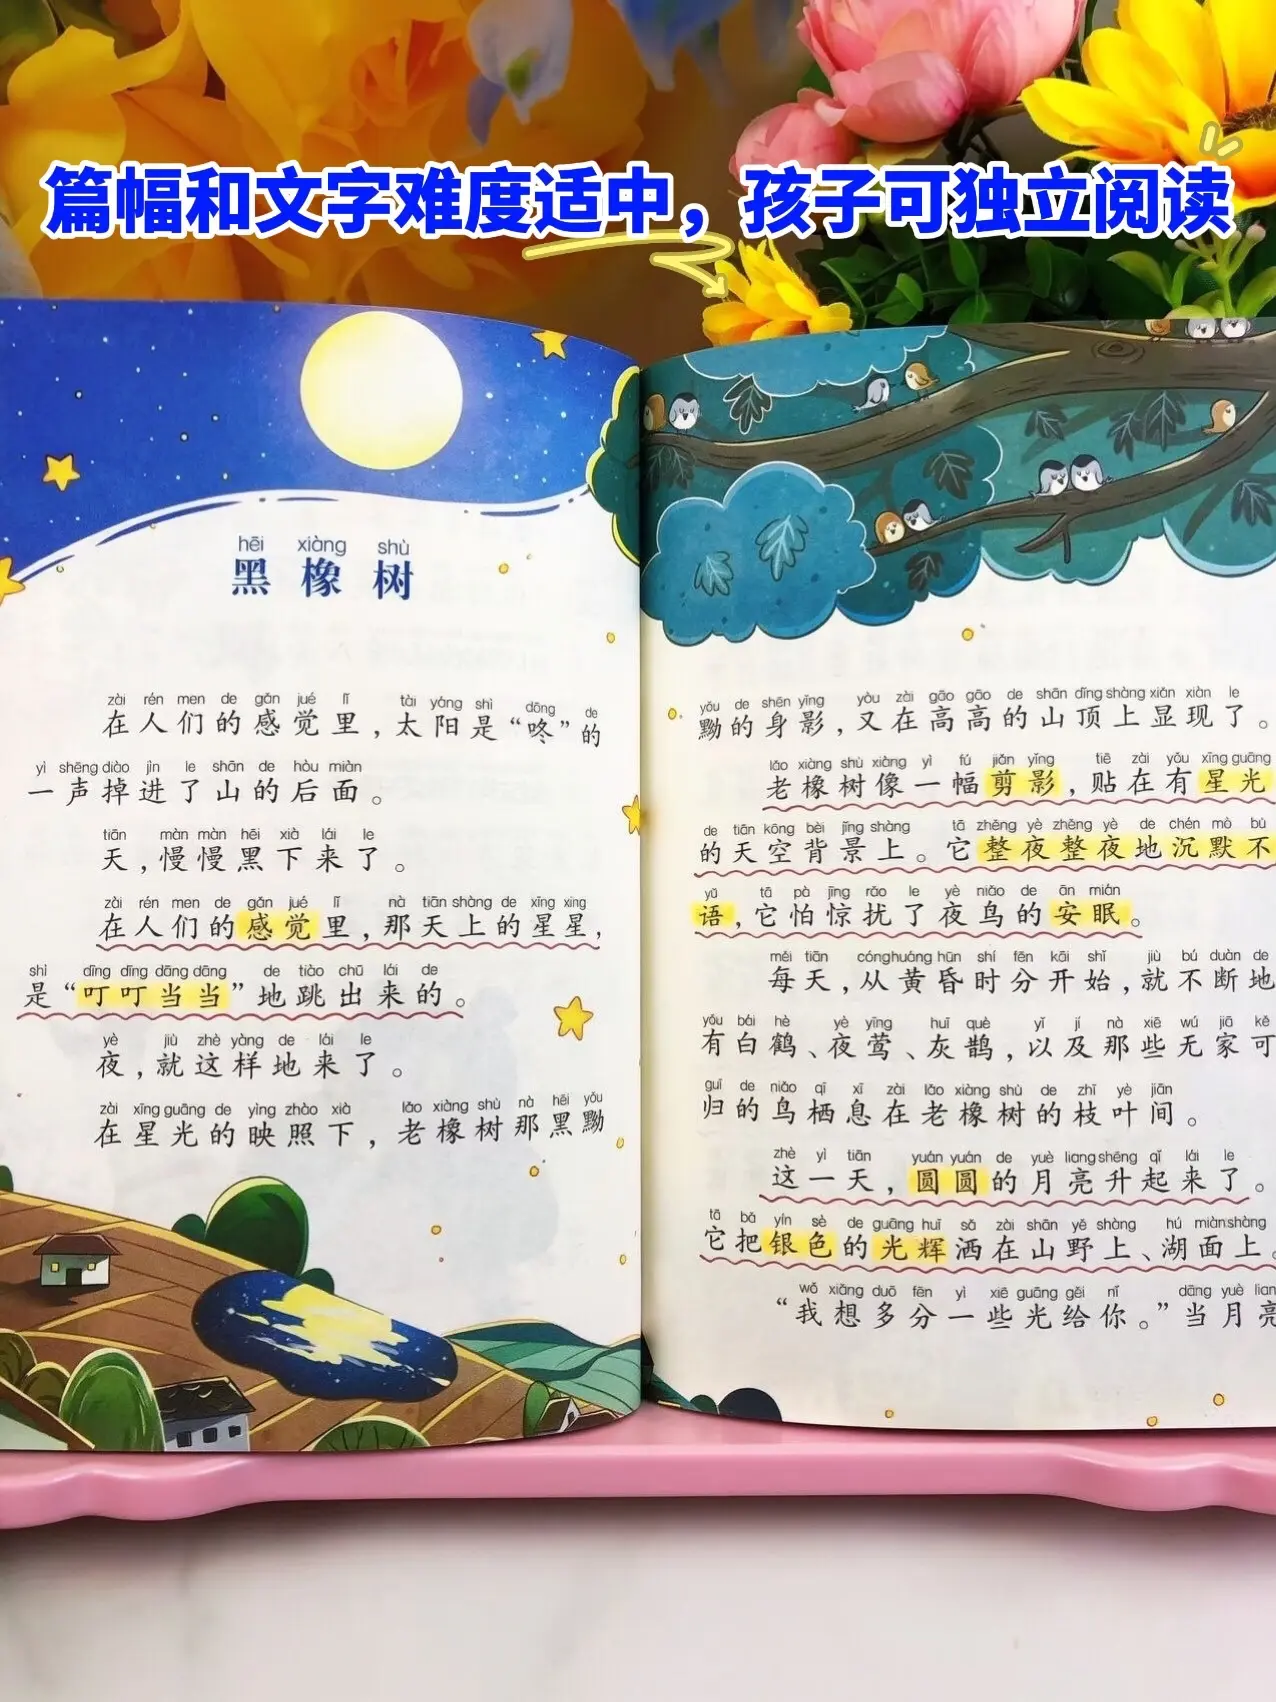 篇幅和文字难度适中，孩子可独立阅读
hēi xiàng shù
黑橡树
zài rén men de gǎn jué lǐ tài yáng shì dōng de
在人们的感觉里，太阳是“咚”的
yì shēng diào jìn le shān de hòu miàn
一声掉进了山的后面。
tiān màn màn hēi xià lái le
天，慢慢黑下来了。
zài rén men de gǎn jué lǐ nà tiān shàng de xīng xing
在人们的感觉里，那天上的星星，
shì dīng dīng dāng dāng de tiào chū lái de
是“叮叮当当”地跳出来的。
yè jiù zhè yàng de lái le
夜，就这样地来了。
zài xīng guāng de yìng zhào xià lǎo xiàng shù nà hēi yǒu
在星光的映照下，老橡树那黑黝
yǒu de shēn yǐng yòu zài gāo gāo de shān dǐng shàng xiǎn xiàn le
黝的身影，又在高高的山顶上显现了。
lǎo xiàng shù xiàng yì fú jiǎn yǐng tiē zài yǒu xīng guāng
老橡树像一幅剪影，贴在有星光
de tiān kōng bèi jǐng shàng tā zhěng yè zhěng yè de chén mò bù
的天空背景上。它整夜整夜地沉默不
yǔ tā pà jīng rǎo le yè niǎo de ān mián
语，它怕惊扰了夜鸟的安眠。
měi tiān cóng huáng hūn shí fēn kāi shǐ jiù bú duàn de
每天，从黄昏时分开始，就不断地
yǒu bái hè yè yīng huī què yǐ jí nà xiē wú jiā kě
有白鹤、夜莺、灰鹊，以及那些无家可
guī de niǎo qī xī zài lǎo xiàng shù de zhī yè jiān
归的鸟栖息在老橡树的枝叶间。
zhè yì tiān yuán yuán de yuè liang shēng qǐ lái le
这一天，圆圆的月亮升起来了。
tā bǎ yín sè de guāng huī sǎ zài shān yě shàng hú miàn shàng
它把银色的光辉洒在山野上、湖面上。
wǒ xiǎng duō fēn yì xiē guāng gěi nǐ dāng yuè lian
“我想多分一些光给你。”当月亮